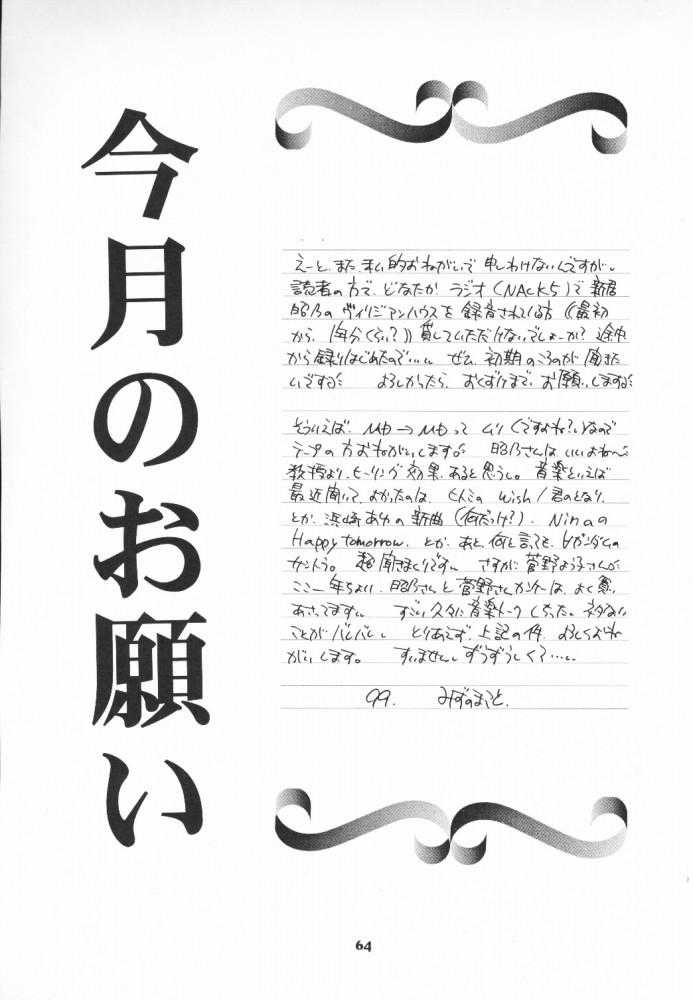 今月のお願い
えーと、また、私的おねがいで申しわけないんですが。
読者の方で、どなたか ラジオ(NACK5)で 新居
昭乃の ヴィリジアンハウスを 録音されてる方《最初
から、1年分くらい?》貸していただけないでしょーか? 途中
から録りはじめたので… ぜひ、初期のころのが聞きた
いですっ よろしかったら、おてすうですが、お願いしますっ
そういえば、MD→MDって ムリ(ですよね?)なので
テープの方おねがいします。 昭乃さんは、いいよね〜
教授より、ヒーリング効果、あると思うし。 音楽といえば
最近聞いて、よかったのは、 Wish/君のとなり、
とか、浜崎あゆの新曲(何だっけ?)、Ninaの
Happy tomorrow. とか、あと、何と言っても、∀ガンダムの
サントラ。 超聞きまくりです。 さすがに菅野よう子さんが
ここ一年ちょい、昭乃さんと菅野さん は、よく買い
あさってます。 すごい久々に音楽トークしちった。ネタない
ことがバレバレ。 とりあえず、上記の件、よろしくおね
がいします。 すいません。ずうずうしくて…。
99. みずのまこと.
64